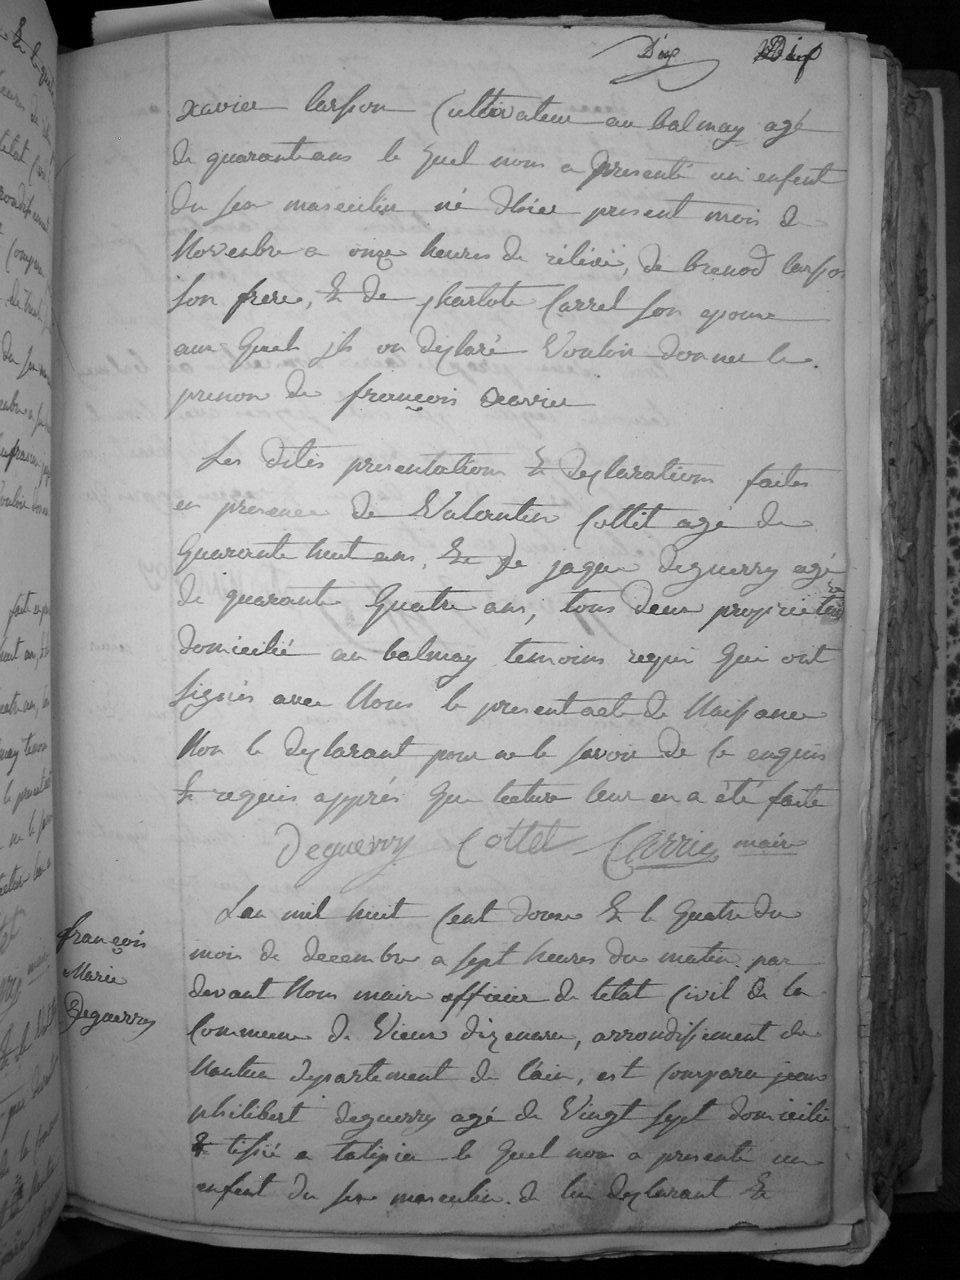 Dix Dix
xavier Carpon Cultivateur au balmay agé
de quaranteans le quel nous a presenté un enfent
du sexe masculin né dhier present mois de
Novenbre a onze heures de rélévé, de benod
son frere, & de charlote Carrel son epouse
aux quels jls on declaré Vouloir donner le
prenon de françois xavier
Les dites presentations & declarations faites
en presence de Valentin Collet agé de
quarante huit ans, & de jaque deguerry agé
de quarante quatre ans, tous deux proprietaires
domicilié au balmay temoins requi qui ont
signés avec Nous le present acte de Naissance
Non le declarant pour ne le savoir de ce enquis
& requis apprés que lecture leur en a été faite
Deguerry Collet Carrier maire
françois
Marie
Deguerry
Lan mil huit cent douze & le quatre du
mois de decembre a sept heures du matin par
devant Nous maire officier de letat civil de la
Commune de Vieux dizenave, arrondissement de
Nantua departement de l'ain, est comparu jean
philibert deguerry agé de Vingt sept domicilié
& tissié a talipiat le quel nous a presenté un
enfent du sexe masculin de lui declarant &